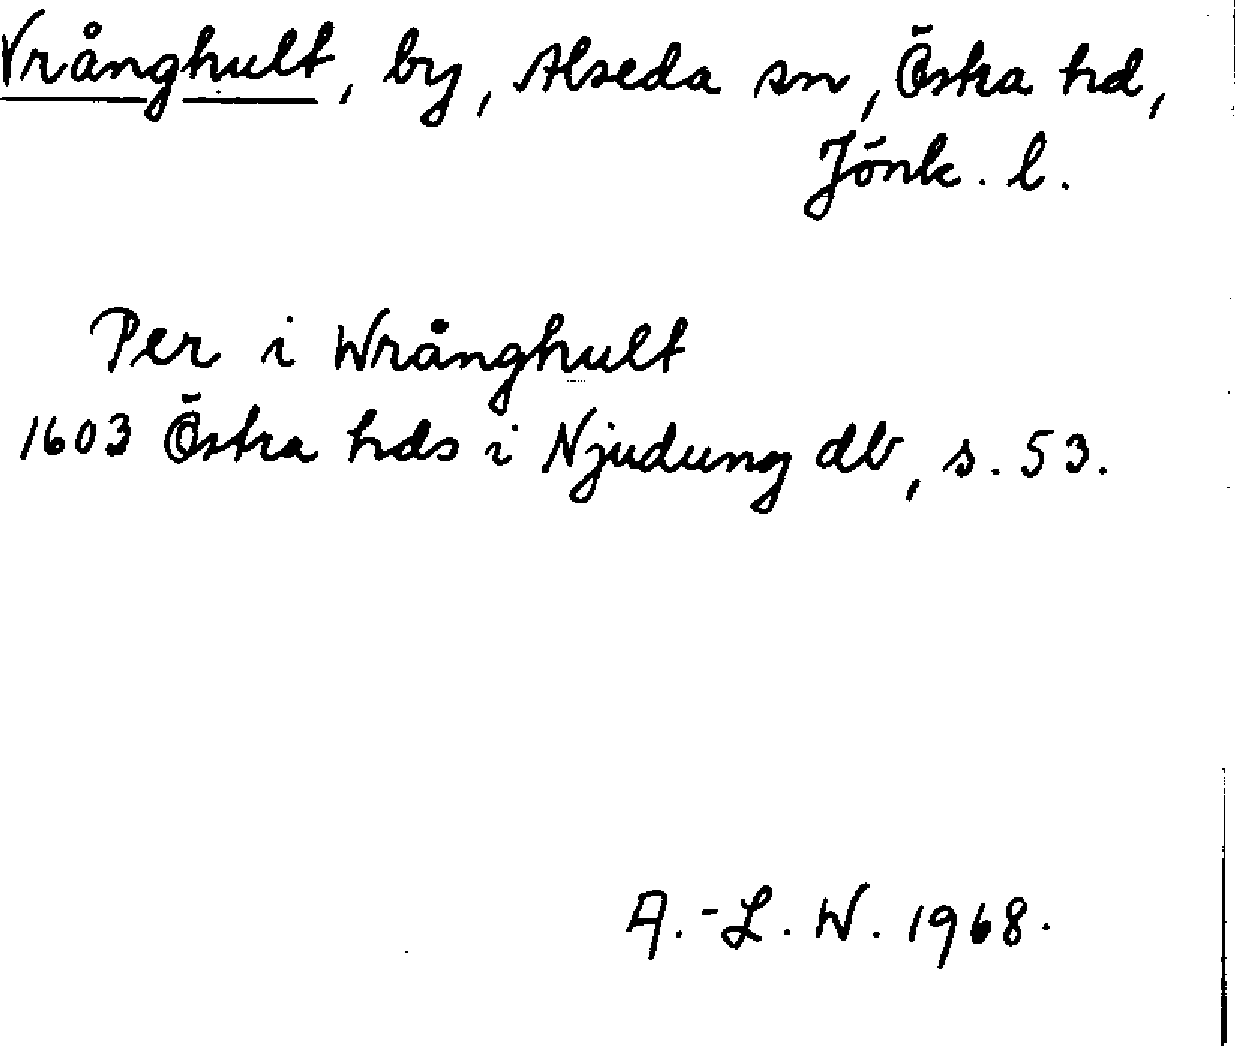 Vrånghult, by, Alseda sn, Östra hd,
Jönk. l.
Per i Wrånghult
1603 Östra hds i Njudung db, s. 53.
A.-L. W. 1968.